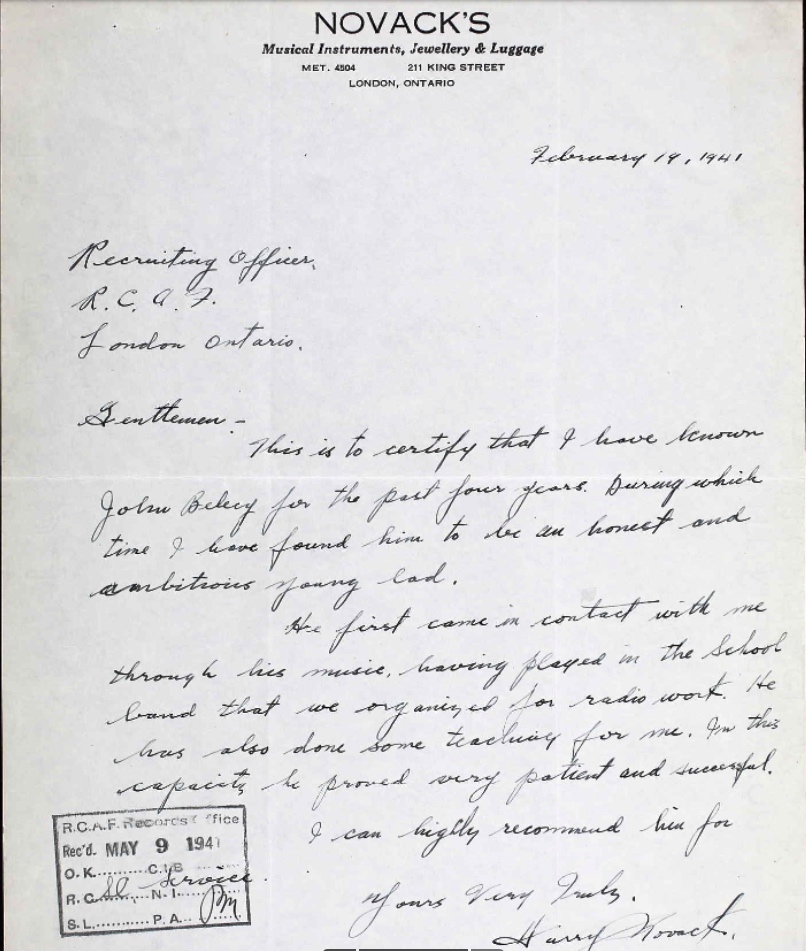 NOVACK'S
Musical Instruments, Jewellery & Luggage
MET. 4504 211 KING STREET
LONDON, ONTARIO
February 19, 1941
Recruiting Officer,
R.C.A.F.
London Ontario.
Gentlemen -
This is to certify that I have known
John for the past four years. During which
time I have found him to be an honest and
ambitious young lad.
He first came in contact with me
through his music, having played in the School
band that we organized for radio work. He
has also done some teaching for me. In this
capacity he proved very patient and successful.
I can highly recommend him for
Yours Very Truly,
Harry Novack.
R.C.A.F. Records Office
Rec'd. MAY 9 1941
O.K. C.I.B
R.C. N.I.
service.
S.L. P.A.